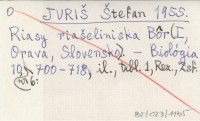 JURIŠ Štefan 1955.
Riasy riašeliniska Bôr (I,
Orava, Slovensko). – Biológia
10, 700-718, il., tabl. 1, Rez., Zsf.
nr 6: